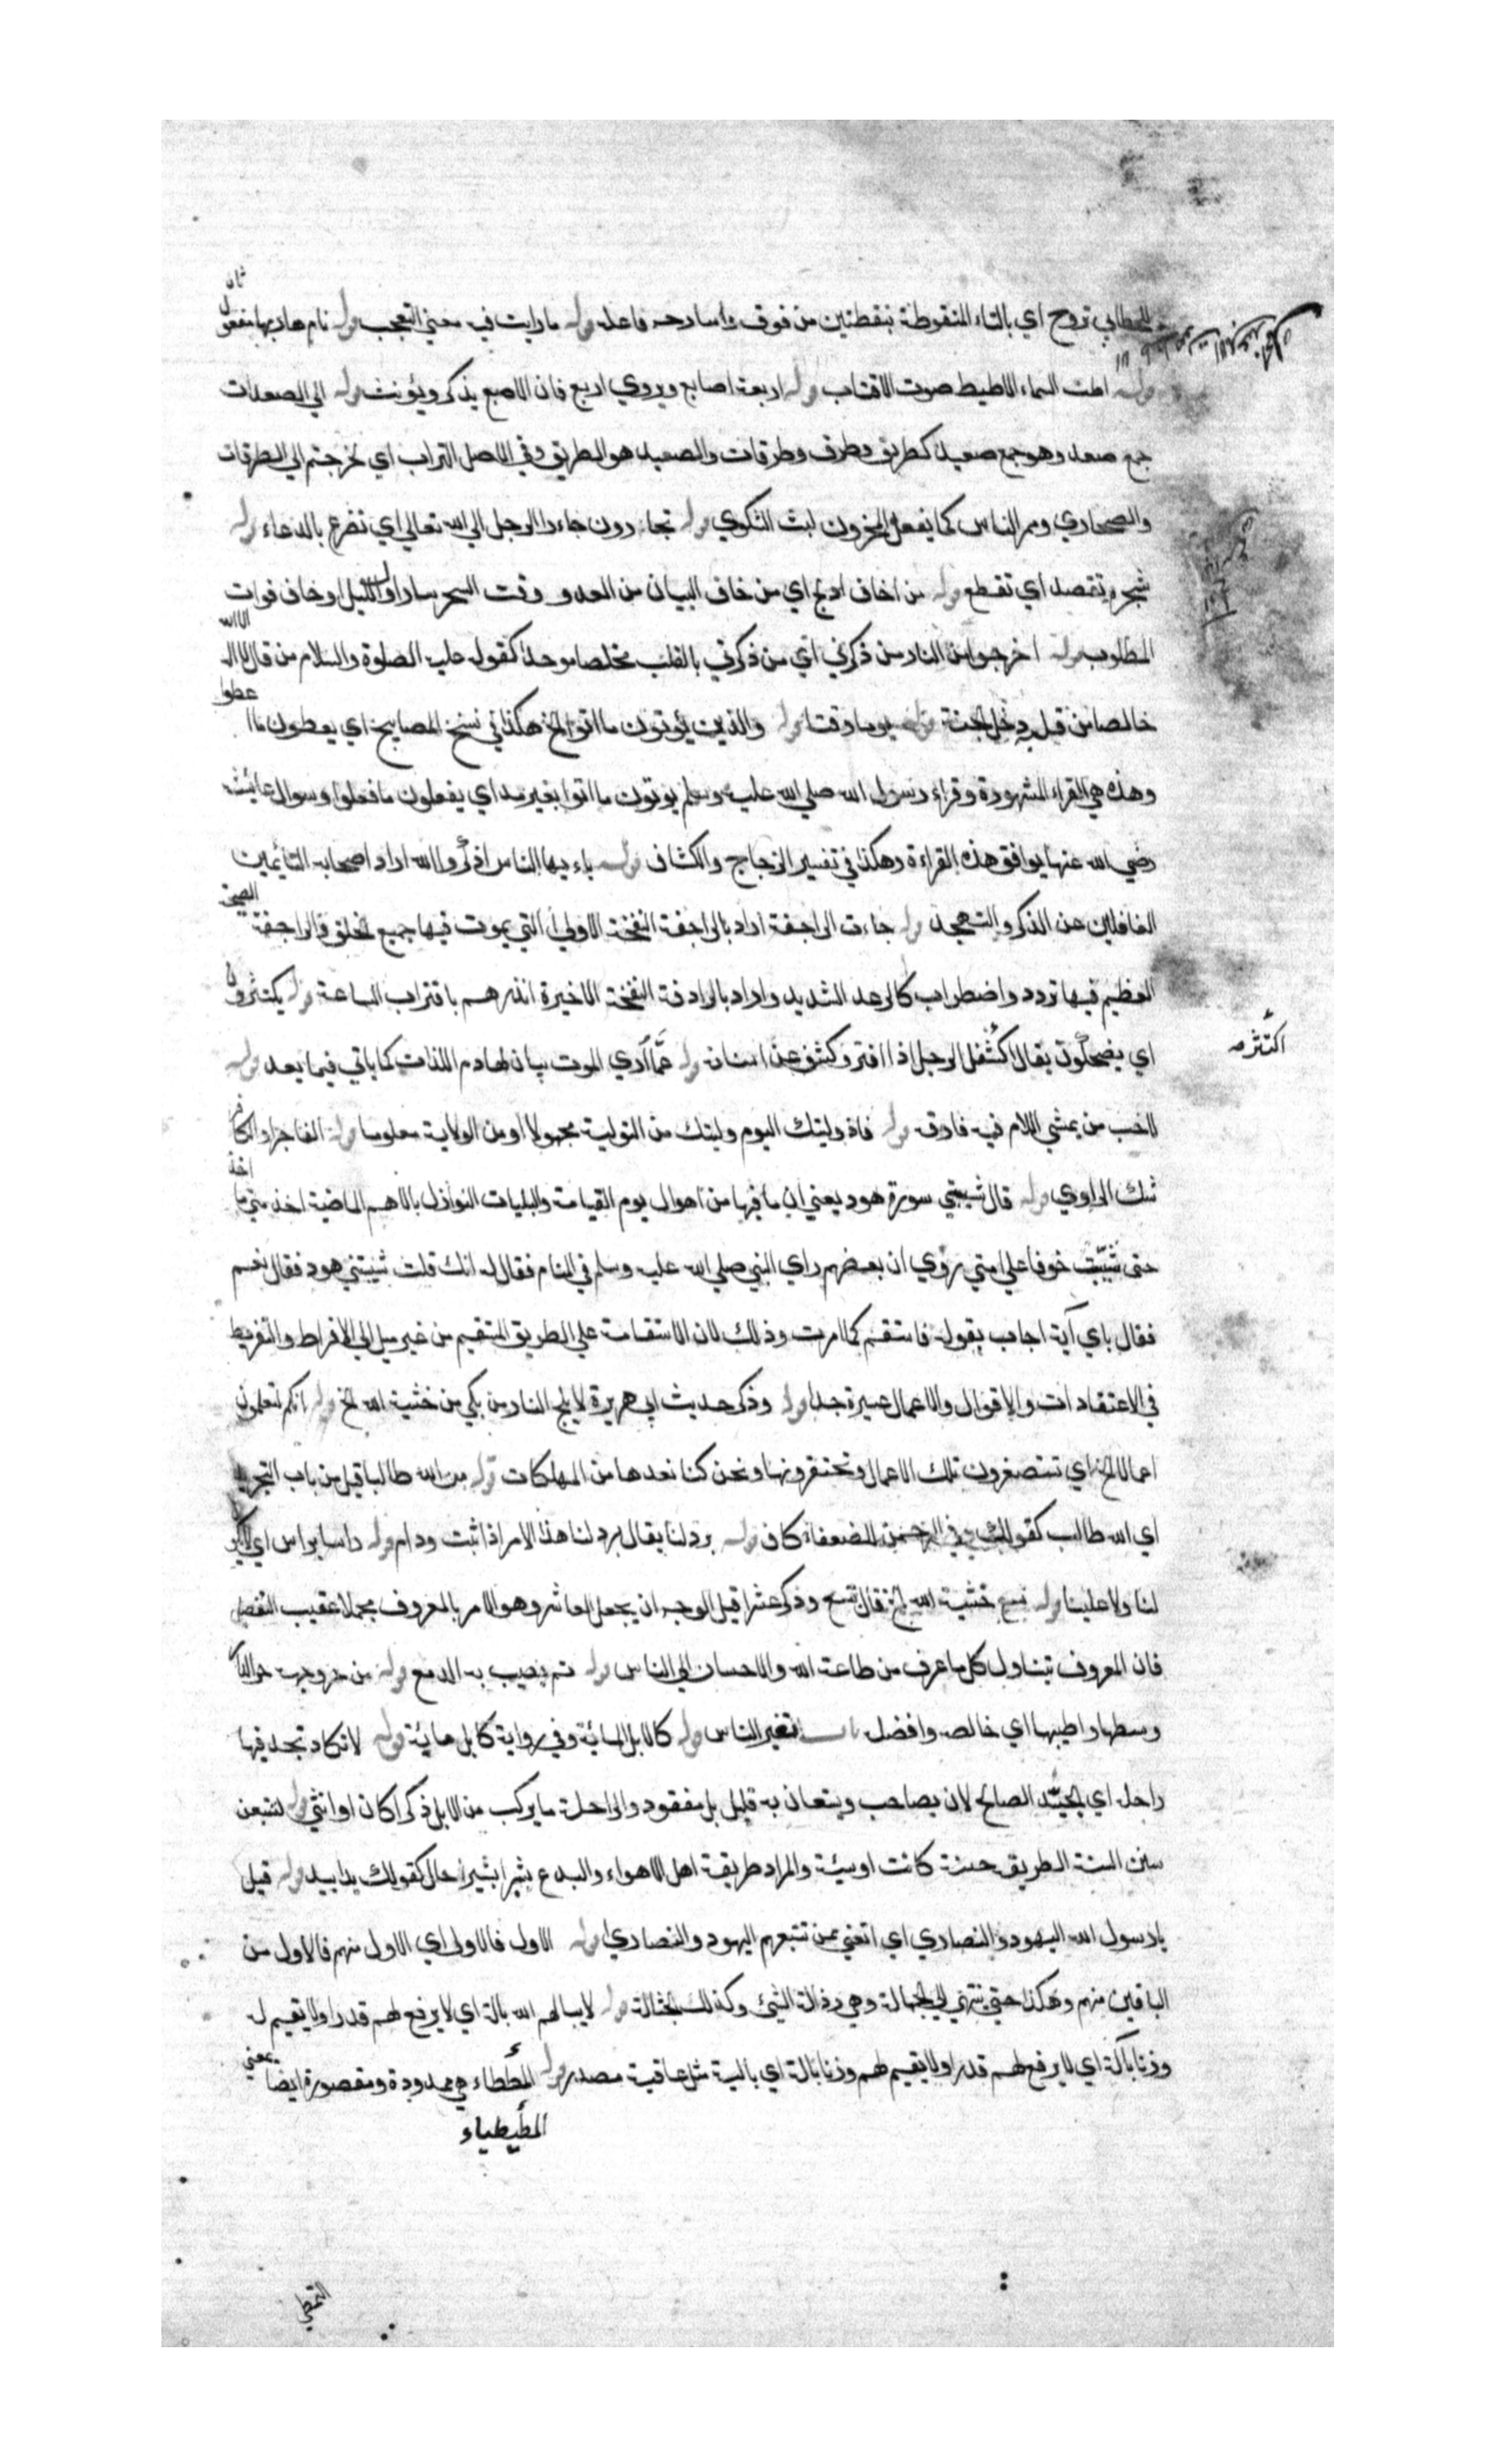 للخطابي تروح اي بالتاء المنقوطة بنقطتين من فوق واسارحه فاعله قوله ما رايت فيه معني التعجب قوله نام هاربها مفعول ثان
قوله اطت السماء الاطيط صوت الاقتاب قوله اربعة اصابع ويروي اربع فان الاصبع يذكر ويؤنث قوله الي الصعدات
جمع صعد وهو جمع صعيد كطريق وطرق وطرقات والصعيد هو الطريق وفي الاصل التراب اي لخرجتم الي الطرقات
والصحاري وممر الناس كما يفعل المحزون لبث الشكوي قوله تجاءرون جاءر الرجل الي الله تعالي اي تضرع بالدعاء قوله
شجرة تعضد اي تقطع قوله من اخاف ادلج اي من خاف البيات من العدو وقت السحر سار اول الليل او خاف فوات
المطلوب قوله اخرجوا من النار من ذكرني اي من ذكرني بالقلب مخلصا موحدا كقوله عليه الصلوة والسلام من قال لا اله الا الله
خالصا من قبل دخل الجنة قوله يوما وقتا قوله والذين يؤتون ما اتوا الخ هكذا في نسخ المصابيح اي يعطون ما اعطوا
وهذه هي القراءة المشهورة وقراءة رسول الله صلي الله عليه وسلم يوتون ما اتوا بغير مد اي يفعلون ما فعلوا وسوال عائشة
رضي الله عنها يوافق هذه القراءة وهكذا في تفسير الزجاج والكشاف قوله ياءيها الناس اذكروا الله اراد اصحابه النائمين
الغافلين عن الذكر والتهجد قوله جاءت الراجفة اراد بالراجفة النفخة الاولي التي يموت فيها جميع الخلق والراجفة الصيحة
العظيم فيها تردد واضطراب كالرعد الشديد واراد بالرادفة النفخة الاخيرة انذرهم باقتراب الساعة قوله يكتشرون
اي يضحكون يقال اكشف الرجل اذا افتر وكشف عن اسنانه قوله عما اري الموت بيان لهادم اللذات كما ياتي فيما بعد قوله
لاحب من يمشي اللام فيه فارق قوله فاذ وليتك اليوم وليتك من التولية مجهولا او من الولاية معلوما قوله الفاجر او الكافر
شك الراوي قوله قال شيبتني سورة هود يعني ان ما فيها من اهوال يوم القيامة والبليات النوازل بالامم الماضية اخذ مني ما اخذ
حتى شيبت خوفا علي امتي روي ان بعضهم راي النبي صلي الله عليه وسلم في المنام فقال له انك قلت شيبتني هود فقال نعم
فقال باي آية اجاب بقوله فاستقم كما امرت وذلك لان الاستقامة علي الطريق المستقيم من غير ميل الي الافراط والتفريط
في الاعتقادات والاقوال والاعمال عسيرة جدا قوله وذكر حديث ابي هريرة لا يلج النار من بكي من خشية الله الخ قوله انكم لتعملون
اعمالا الخ اي تستصغرون تلك الاعمال وتحتقرونها ونحن كنا نعدها من المهلكات قوله من الله طالبا قيل من باب التجريد
اي الله طالب كقولك وفي الرحمن للضعفاء كاف قوله برد لنا يقال برد لنا هذا الامر اذا ثبت ودام قوله راسا براس اي لا يكون
لنا ولا علينا قوله تسع خشية الله الخ فقال تسع وذكر عشرا قيل الوجه ان يجعل العاشر وهو الامر بالمعروف مجملا عقيب التفصيل
فان المعروف يتناول كل ما عرف من طاعة الله والاحسان الي الناس قوله ثم يصيب به الدمع قوله من حر وجهه حر الدار
وسطها واطيبها اي خالصه وافضل باب تغير الناس قوله كالابل المائة وفي رواية كابل مائة قوله لا تكاد تجد فيها
راحلة اي الجيد الصالح لان يصاحب ويستعان به قليل بل مفقود والراحلة ما يركب من الابل ذكرا كان او انثي قوله لتتبعن
سنن السنة الطريق حسنة كانت او سيئة والمراد طريقة اهل الاهواء والبدع شبرا بشبر حال كقولك يدا بيد قوله قيل
يا رسول الله اليهود والنصاري اي اتعني بمن نتبعهم اليهود والنصاري قوله الاول فالاول اي الاول منهم فالاول من
الباقين منهم وهكذا حتي ينتهي الي الحثالة وهي رذالة الشئ وكذلك الحثالة قوله لا يباليهم الله بالة اي لا يرفع لهم قدرا ولا يقيم له
وزنا بالة اي لا يرفع لهم قدرا ولا يقيم لهم وزنا بالة اي بالية مثل عاقبة مصدر قوله المطيطاء هي ممدودة ومقصورة ايضا بمعني
المطيطياء
التمطي
اكتشر صه